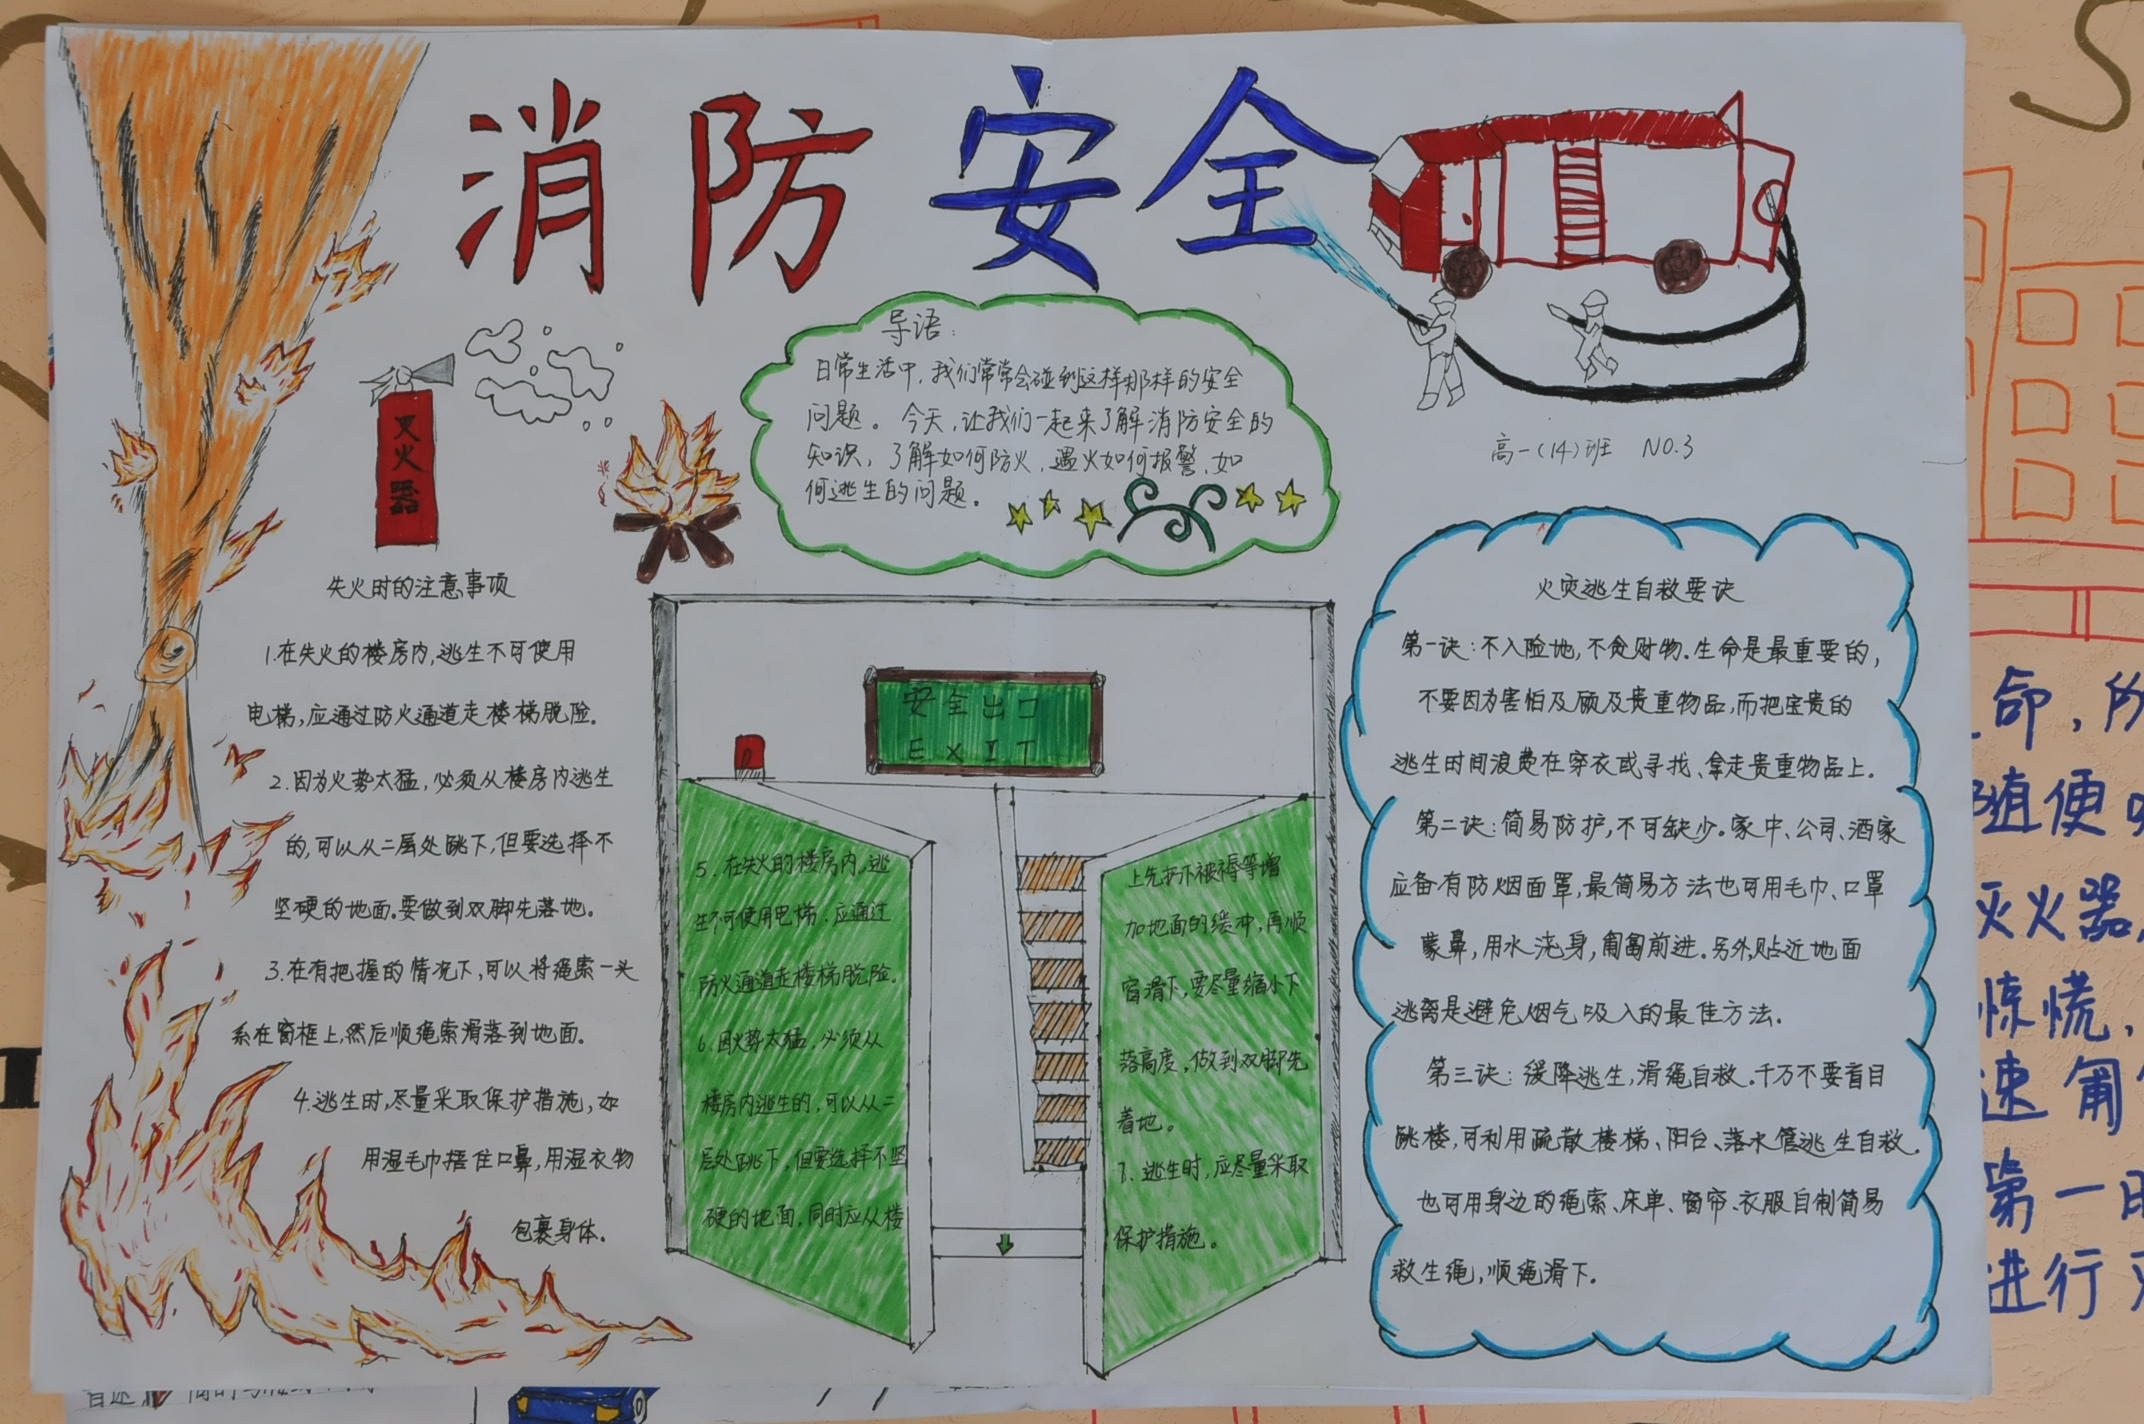 消防安全
导语:
日常生活中,我们常常会碰到这样那样的安全
问题。今天,让我们一起来了解消防安全的
知识,了解如何防火,遇火如何报警,如
何逃生的问题。
高一(14)班 NO.3
灭火器
失火时的注意事项
1.在失火的楼房内,逃生不可使用
电梯,应通过防火通道走楼梯脱险.
2.因为火势太猛,必须从楼房内逃生
的,可以从二层处跳下,但要选择不
坚硬的地面.要做到双脚先落地.
3.在有把握的情况下,可以将绳索一头
系在窗框上,然后顺绳索滑落到地面.
4.逃生时,尽量采取保护措施,如
用湿毛巾捂住口鼻,用湿衣物
包裹身体.
安全出口
EXIT
5.在失火的楼房内,逃
生不可使用电梯.应通过
防火通道走楼梯脱险.
6.因火势太猛,必须从
楼房内逃生的,可以从二
层处跳下,但要选择不坚
硬的地面,同时应从楼
上先扔下被褥等增
加地面的缓冲,再顺
窗滑下,要尽量缩小下
落高度,做到双脚先
着地。
7.逃生时,应尽量采取
保护措施。
火灾逃生自救要诀
第一诀:不入险地,不贪财物.生命是最重要的,
不要因为害怕及顾及贵重物品,而把宝贵的
逃生时间浪费在穿衣或寻找、拿走贵重物品上.
第二诀:简易防护,不可缺少.家中、公司、酒家
应备有防烟面罩,最简易方法也可用毛巾、口罩
蒙鼻,用水浇身,匍匐前进.另外,贴近地面
逃离是避免烟气吸入的最佳方法.
第三诀:缓降逃生,滑绳自救.千万不要盲目
跳楼,可利用疏散楼梯、阳台、落水管逃生自救.
也可用身边的绳索、床单、窗帘、衣服自制简易
救生绳,顺绳滑下.
命,
随便
灭火器,
惊慌,
速匍
第一时
进行